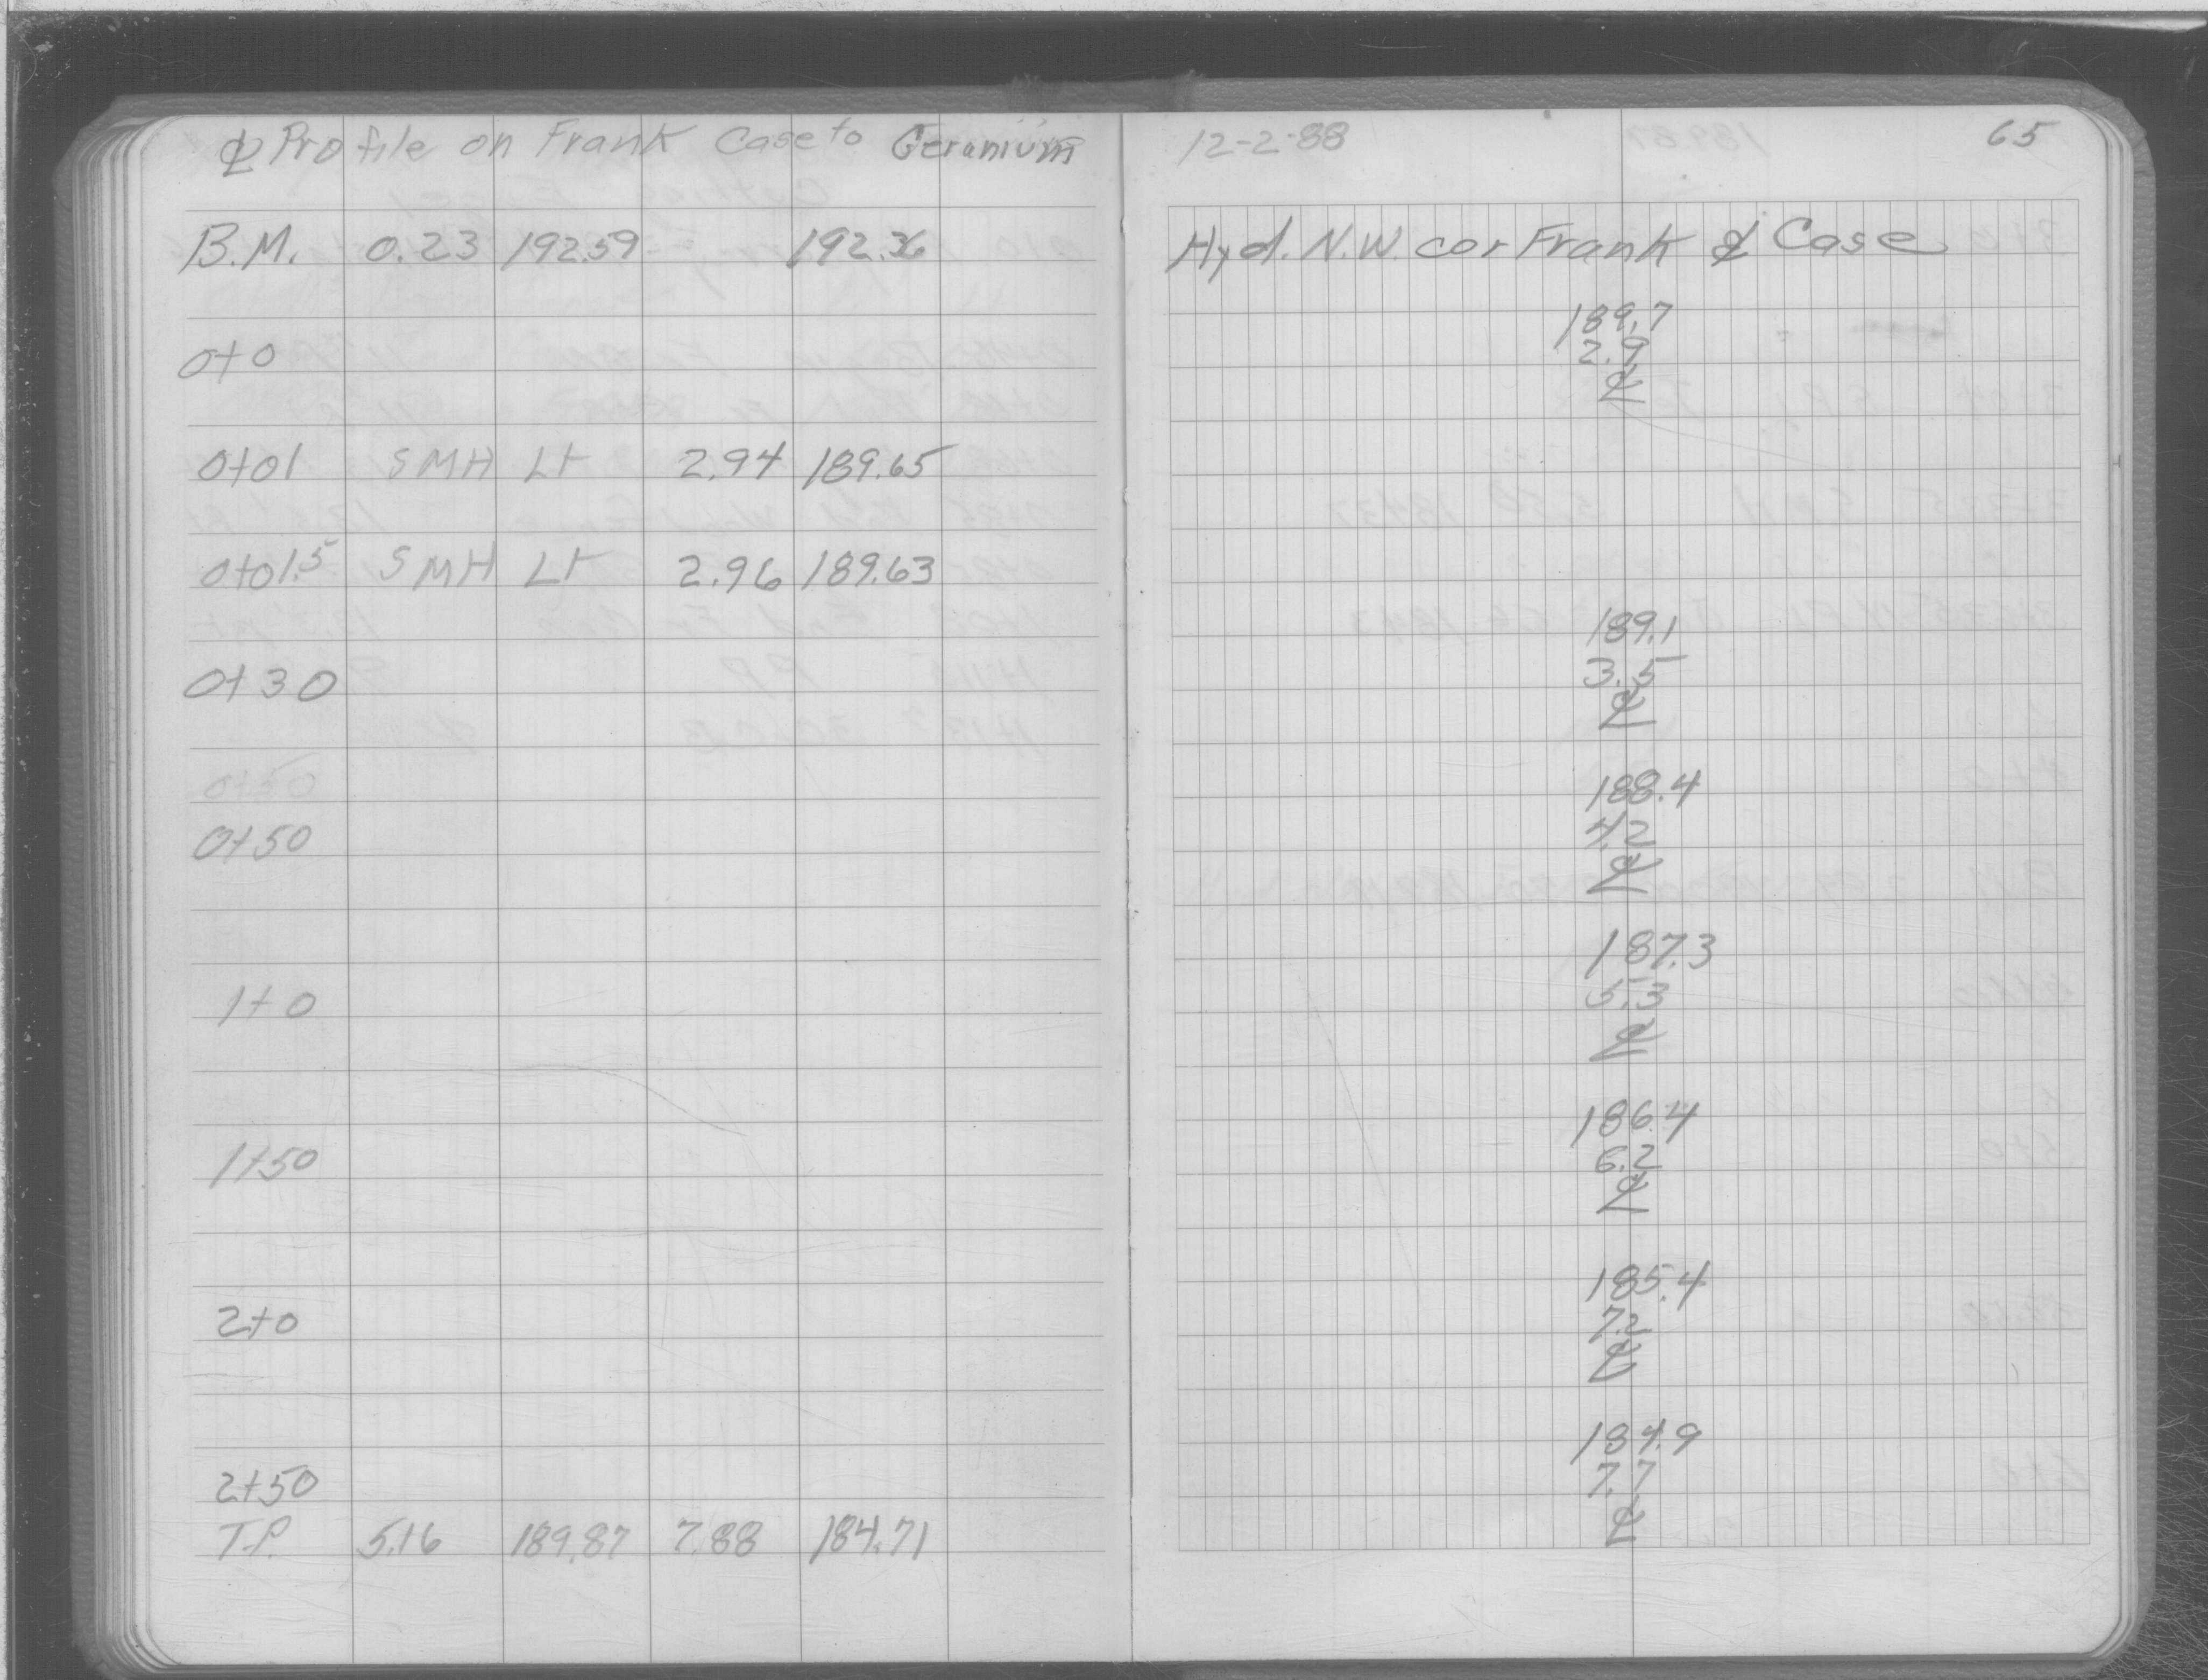 ℄ Profile on Frank Case to Geranium
B.M. 0.23 192.59 192.36
0+0
0+01 SMH Lt 2.94 189.65
0+01.5 SMH Lt 2.96 189.63
0+30
0+50
0+50
1+0
1+50
2+0
2+50
T.P. 5.16 189.87 7.88 184.71
12-2-88 65
Hyd. N.W. cor Frank & Case
189.7
2.9
℄
189.1
3.5
℄
188.4
4.2
℄
187.3
5.3
℄
186.4
6.2
℄
185.4
7.2
℄
184.9
7.7
℄